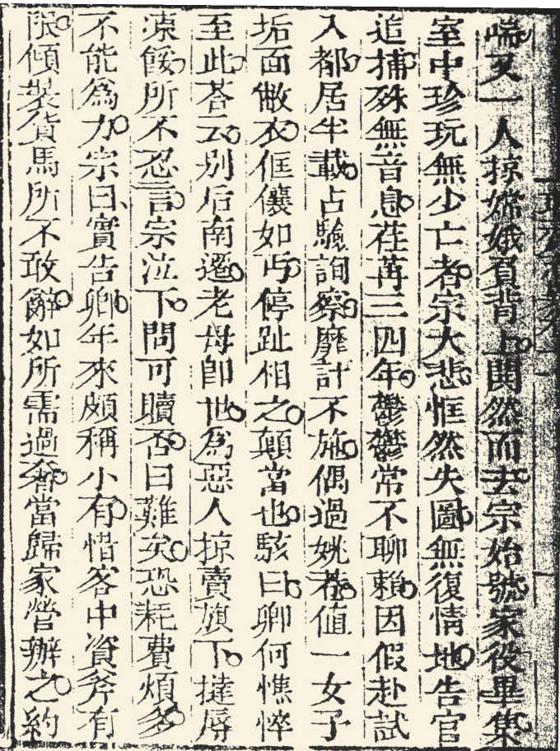 喘又一人掠嫦娥負背上鬨然而去宗始號家役畢集
室中珍玩無少亡者宗大悲恇然失圖無復情地告官
追捕殊無音息荏苒三四年鬱鬱常不聊賴因假赴試
入都居半載占驗詢察靡計不施偶過姚巷值一女子
垢面敝衣恇儴如丐停趾相之顛當也駭曰卿何憔悴
至此荅云別后南遷老母卽世為惡人掠賣旗下撻辱
凍餒所不忍言宗泣下問可贖否曰難矣恐耗費煩多
不能為力宗曰實告卿年來頗稱小有惜客中資斧有
限傾裝貨馬所不敢辭如所需過奢當歸家營辦之約